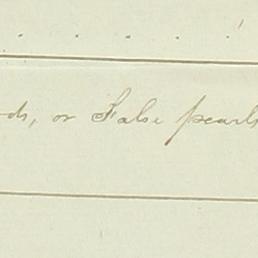 ds, or False pearls